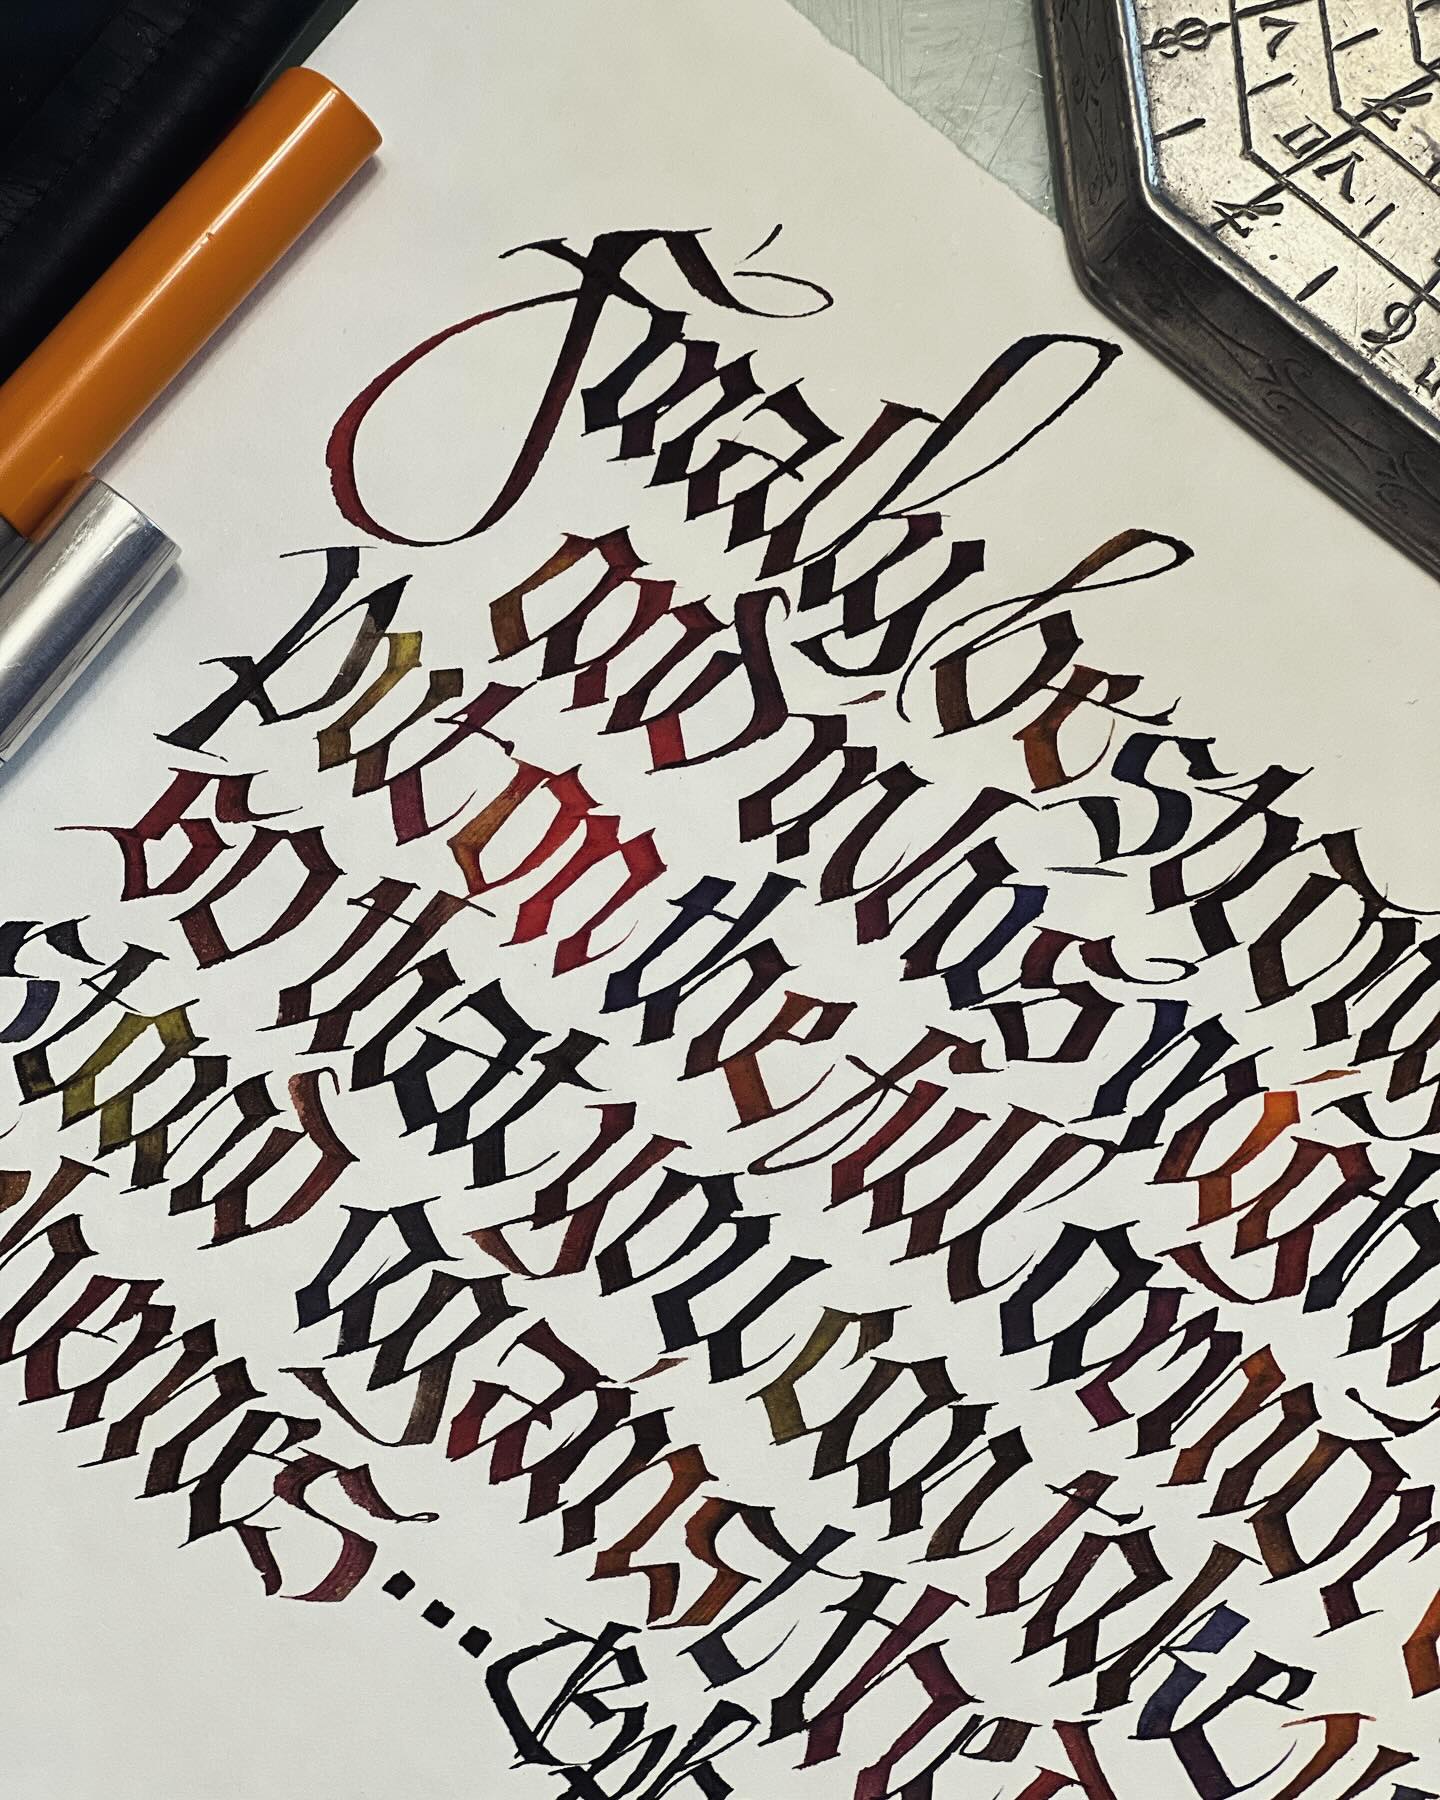 Finally be strong
and in his migh
put on the full armor
so that you can take
stand against the
hemes...
Eph